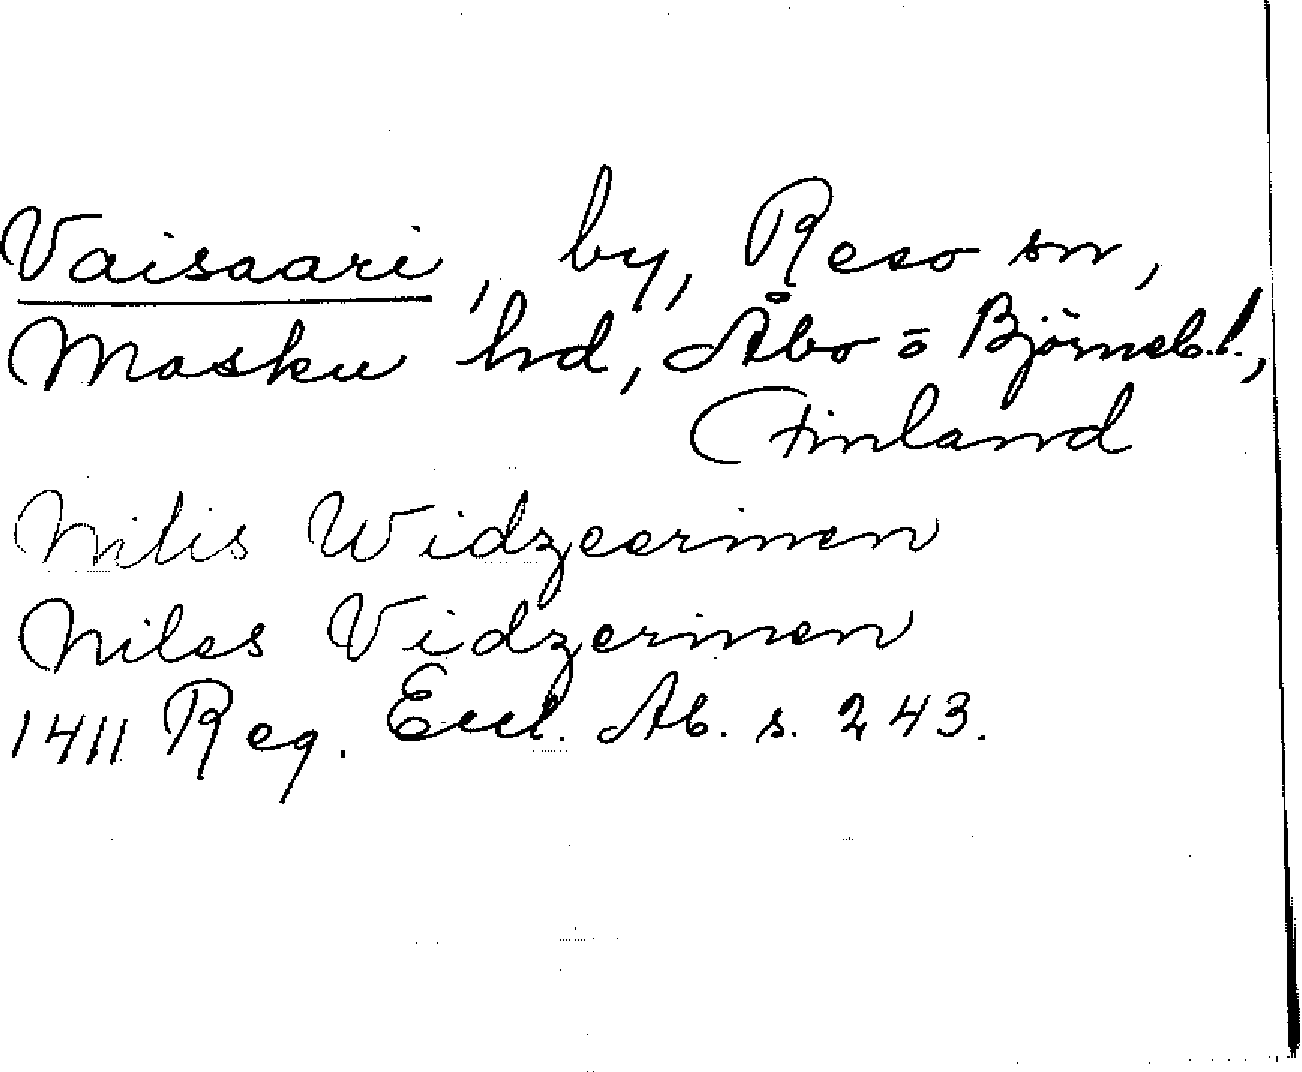 Vaisaari, by, Reso sn,
Masku hd, Åbo o Björneb.l.,
Finland
Nilis Widzeerinen
Niles Vidzerinen
1411 Reg. Eccl. Ab. s. 243.